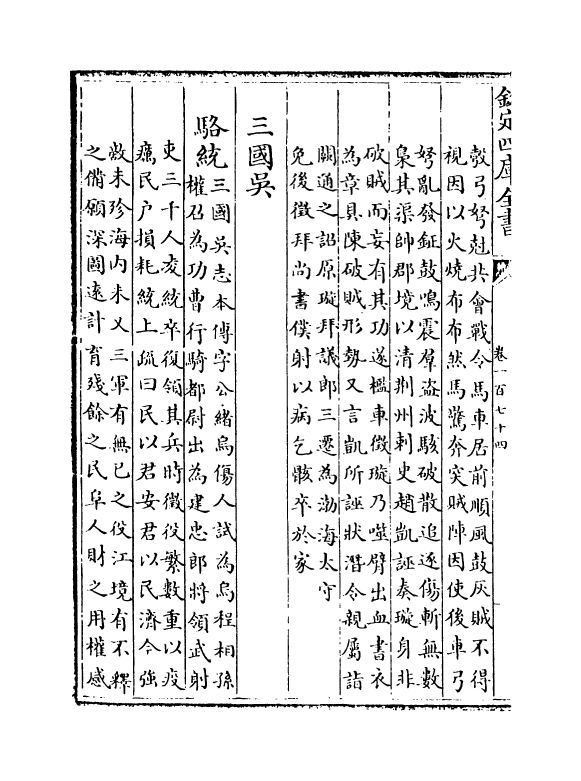 欽定四庫全書 卷一百七十四
彀弓弩尅共會戰令馬車居前順風鼓灰賊不得
視因以火燒布布然馬驚奔突賊陣因使後車弓
弩亂發鉦鼓鳴震羣盜波駭破散追逐傷斬無數
梟其渠帥郡境以清荆州刺史趙凱誣奏璇身非
破賊而妄有其功遂檻車徵璇乃噬臂出血書衣
為章具陳破賊形勢又言凱所誣狀潛令親屬詣
闕通之詔原璇拜議郎三遷為渤海太守
免後徵拜尚書僕射以病乞骸卒於家
三國吳
駱統 三國吳志本傳字公緒烏傷人試為烏程相孫
權召為功曹行騎都尉出為建忠郎將領武射
吏三千人凌統卒復領其兵時徵役繁數重以疫
癘民戶損耗統上疏曰民以君安君以民濟今強
敵未殄海内未乂三軍有無已之役江境有不釋
之備願深圖遠計育殘餘之民阜人財之用權感